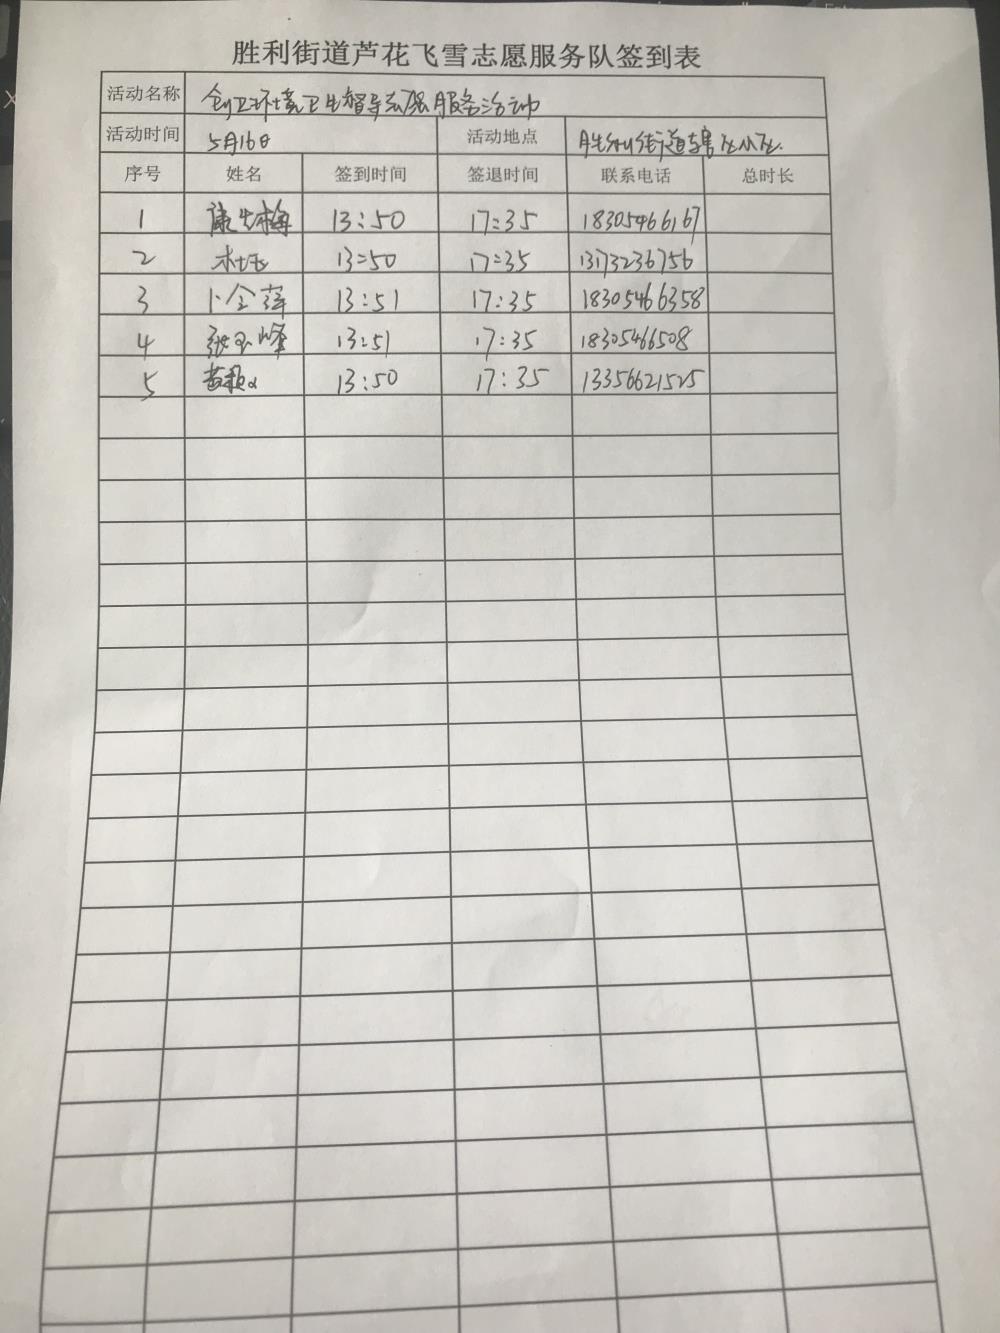 胜利街道芦花飞雪志愿服务队签到表
活动名称 创卫环境卫生督导志愿服务活动
活动时间 5月16日 活动地点 胜利街道辖区小区.
序号 姓名 签到时间 签退时间 联系电话 总时长
1 13:50 17:35 18305466167
2 杜玉 13:50 17:35 13173236756
3 卜全萍 13:51 17:35 18305466358
4 张玉峰 13:51 17:35 18305466508
5 13:50 17:35 13356621525